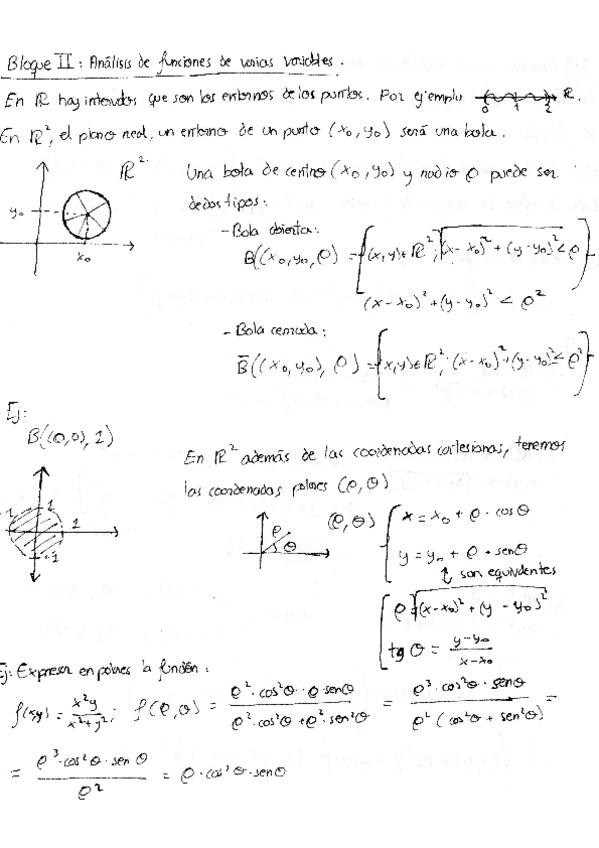 Bloque II: Análisis de funciones de varias variables.
En ℝ hay intervalos que son los entornos de los puntos. Por ejemplo 0 1 2 ℝ.
En ℝ², el plano real, un entorno de un punto (x₀, y₀) será una bola.
ℝ²
y₀
x₀
Una bola de centro (x₀, y₀) y radio ρ puede ser
de dos tipos:
- Bola abierta:
B((x₀, y₀, ρ) = {(x,y) ∈ ℝ²; √(x-x₀)² + (y-y₀)² < ρ}
(x-x₀)² + (y-y₀)² < ρ²
- Bola cerrada:
B̅((x₀, y₀), ρ) = {x,y) ∈ ℝ²; (x-x₀)² + (y-y₀)² ≤ ρ²}
Ej:
B((0,0), 1)
-1 1 1 -1
En ℝ² además de las coordenadas cartesianas, tenemos
las coordenadas polares (ρ, θ)
ρ θ
(ρ, θ) { x = x₀ + ρ · cos θ
y = y₀ + ρ · sen θ
↕ son equivalentes
{ ρ = √(x-x₀)² + (y-y₀)²
tg θ = (y-y₀)/(x-x₀)
Ej: Expresar en polares la función:
f(x,y) = x²y/(x²+y²); f(ρ,θ) = (ρ²·cos²θ·ρ senθ)/(ρ²·cos²θ + ρ²·sen²θ) = (ρ³·cos²θ·senθ)/(ρ²(cos²θ + sen²θ)) =
= (ρ³·cos²θ·senθ)/ρ² = ρ·cos²θ·senθ